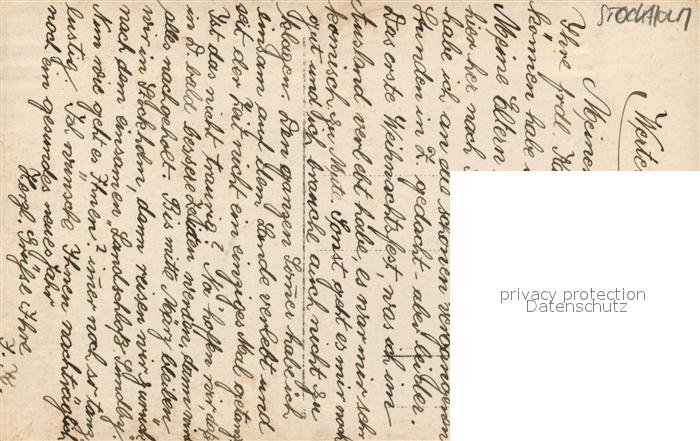 STOCKHOLM
Werte
Meine
Ihre frdl. K
können habe
Meine Eltern
hier her nach
habe ich an all die schönen vergangenen
Stunden in Z. gedacht - aber lieber.
Das erste Weihnachtsfest, was ich im
Ausland verlebt habe, es war mir sehr
komisch zu Mute. Sonst geht es mir noch
gut und ich brauche auch nicht zu
klagen. Den ganzen Sommer habe ich
einsam auf dem Lande verlebt und
seit der Zeit nicht ein einziges Mal getanzt
Ist das nicht traurig? Na hoffen wir, daß
in D. bald bessere Zeiten werden, dann wird
alles nachgeholt. Bis mitte März bleiben
wir in Stockholm, dann reisen wir zurück
nach dem einsamen „Landschloß" Lundby.
Nun wie geht es Ihnen? immer noch so tanz
lustig? Ich wünsche Ihnen nachträglich
noch ein gesundes neues Jahr
Herzl. Grüße Ihre
privacy protection
Datenschutz